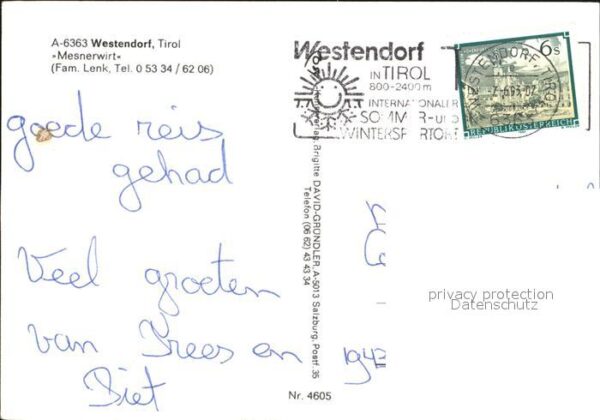 A-6363 Westendorf, Tirol
»Mesnerwirt«
(Fam. Lenk, Tel. 0 53 34 / 62 06)
Westendorf
IN TIROL
800-2400 m
INTERNATIONALER
SOMMER- und
WINTERSPORTORT
6 s
REPUBLIK ÖSTERREICH
WESTENDORF, TIROL
6363
goede reis
gehad
Veel groeten
van Brees en
Piet
194
Brigitte DAVID-GRÜNDLER, A-5013 Salzburg, Postf. 35
Telefon (06 62) 43 43 34
privacy protection
Datenschutz
Nr. 4605